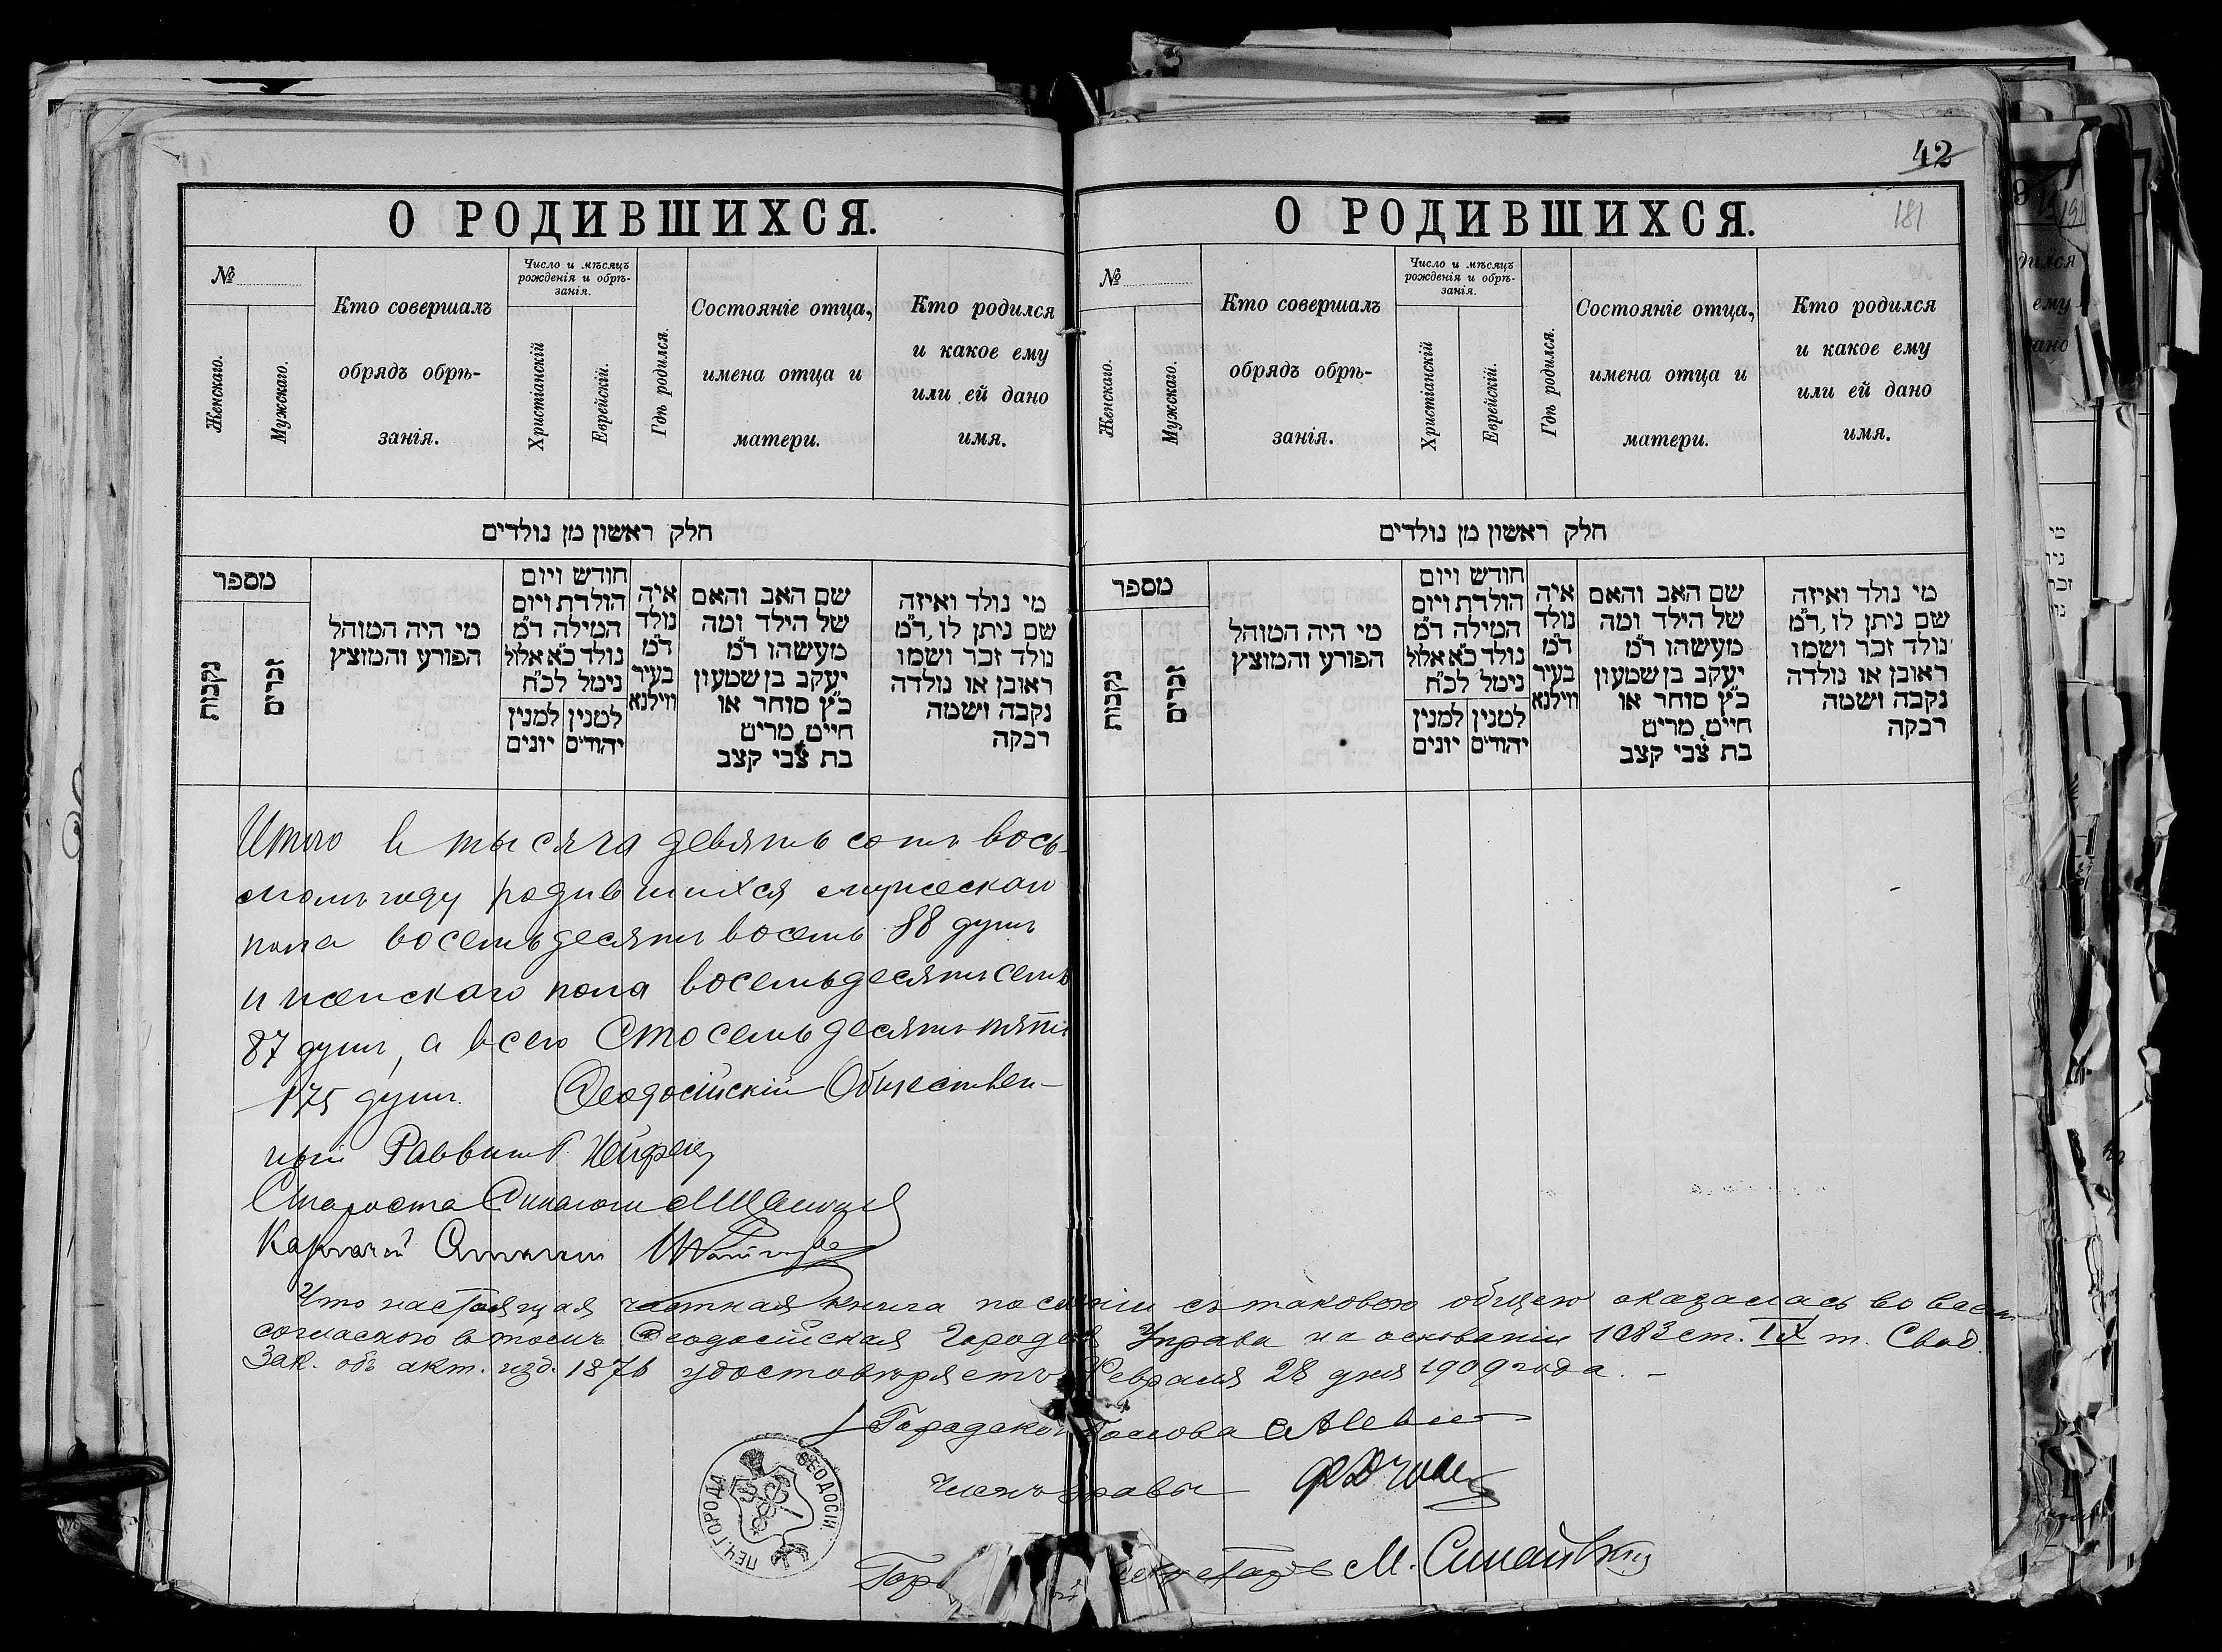 О РОДИВШИХСЯ.
№
Женскаго.
Мужскаго.
Кто совершалъ
обрядъ обрѣ-
занія.
Число и мѣсяцъ
рожденія и обрѣ-
занія.
Христіанскій
Еврейскій.
Гдѣ родился.
Состояніе отца,
имена отца и
матери.
Кто родился
и какое ему
или ей дано
имя.
חלק ראשון מן נולדים
מספר
נקבות
זכרים
מי היה המוהל
הפורע והמוצץ
חודש ויום
הולדת ויום
המילה ד"מ
נולד כ"א אלול
נימל לכ"ח
למנין יהודים
למנין יונים
איה
נולד
ד"מ
בעיר
ווילנא
שם האב והאם
של הילד ומה
מעשהו ד"מ
יעקב בן שמעון
כ"ץ סוחר או
חייט, מרים
בת צבי קצב
מי נולד ואיזה
שם ניתן לו, ד"מ
נולד זכר ושמו
ראובן או נולדה
נקבה ושמה
רבקה
Итого в тысяча девятьсотъ вось-
момъ году родившихся мужескаго
пола восемьдесятъ восемь 88 душъ
и женскаго пола восемьдесятъ семь
87 душъ, а всего Сто семьдесятъ пять
175 душъ. Ѳеодосійскій Обществен-
ный Раввинъ
Староста Синагоги
Казначей
42
О РОДИВШИХСЯ.
181
№
Женскаго.
Мужскаго.
Кто совершалъ
обрядъ обрѣ-
занія.
Число и мѣсяцъ
рожденія и обрѣ-
занія.
Христіанскій
Еврейскій.
Гдѣ родился.
Состояніе отца,
имена отца и
матери.
Кто родился
и какое ему
или ей дано
имя.
חלק ראשון מן נולדים
מספר
נקבות
זכרים
מי היה המוהל
הפורע והמוצץ
חודש ויום
הולדת ויום
המילה ד"מ
נולד כ"א אלול
נימל לכ"ח
למנין יהודים
למנין יונים
איה
נולד
ד"מ
בעיר
ווילנא
שם האב והאם
של הילד ומה
מעשהו ד"מ
יעקב בן שמעון
כ"ץ סוחר או
חייט, מרים
בת צבי קצב
מי נולד ואיזה
שם ניתן לו, ד"מ
נולד זכר ושמו
ראובן או נולדה
נקבה ושמה
רבקה
Что настоящая книга съ таковою общею оказалась во всемъ
согласною въ томъ Ѳеодосійская Городская Управа на основаніи 1083 ст. IX т. Свод.
Зак. объ акт. изд. 1876 удостовѣряетъ Февраля 28 дня 1909 года. –
Городской Голова
Членъ Управы
ПЕЧ. ГОРОДА ѲЕОДОСІИ.
М.